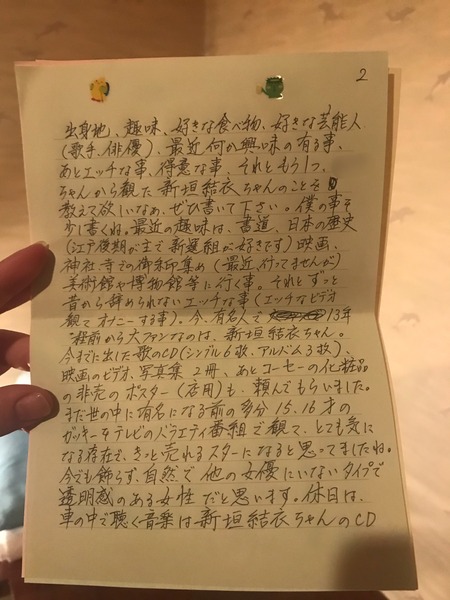 2
出身地、趣味、好きな食べ物、好きな芸能人
(歌手、俳優)、最近何か興味の有る事、
あとエッチな事、得意な事、それともう1つ、
ちゃんから観た新垣結衣ちゃんのことを
教えて欲しいなぁ、ぜひ書いて下さい。僕の事を
少し書くね。最近の趣味は、書道、日本の歴史
(江戸後期が主で新選組が好きです)映画、
神社、寺での御朱印集め(最近、行ってませんが)
美術館や博物館等に行く事。それとずっと
昔から辞められないエッチな事(エッチなビデオ
観てオナニーする事)。今、有名人で 13年
程前から大ファンなのは、新垣結衣ちゃん。
今までに出した歌のCD(シングル6枚、アルバム3枚)、
映画のビデオ、写真集2冊、あとコーセーの化粧品
の非売のポスター(店用)も、頼んでもらいました。
まだ世の中に有名になる前の多分15、16才の
ガッキーをテレビのバラエティ番組で観て、とても気に
なる存在で、きっと売れるスターになると思ってましたね。
今でも飾らず、自然で他の女優にいないタイプで
透明感のある女性だと思います。休日は、
車の中で聴く音楽は新垣結衣ちゃんのCD